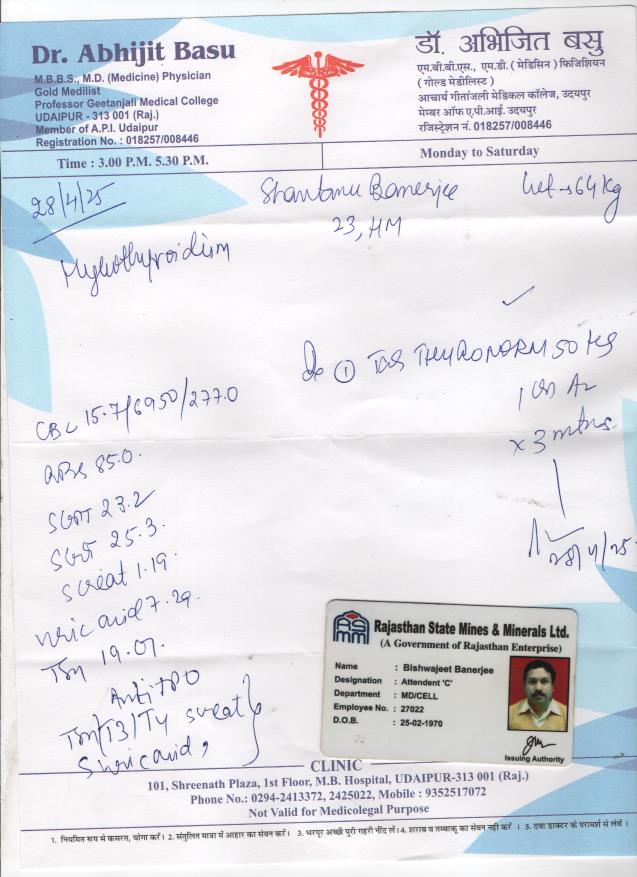 Dr. Abhijit Basu
M.B.B.S., M.D. (Medicine) Physician
Gold Medilist
Professor Geetanjali Medical College
UDAIPUR - 313 001 (Raj.)
Member of A.P.I. Udaipur
Registration No. : 018257/008446
डॉ. अभिजित बसु
एम.बी.बी.एस., एम.डी. ( मेडिसिन ) फिजिशियन
( गोल्ड मेडीलिस्ट )
आचार्य गीतांजली मेडिकल कॉलेज, उदयपुर
मेम्बर ऑफ ए.पी.आई. उदयपुर
रजिस्ट्रेशन नं. 018257/008446
Time : 3.00 P.M. 5.30 P.M.
Monday to Saturday
28/4/25
Shantanu Banerjee
23, HM
Wt → 64 kg
Hypothyroidism
① TAB THYRONORM 50 MG
1 on
x 3 mths
28/4/25
CBC 15.7/6950/2770
RBS 85.0.
SGOT 23.2
SGPT 25.3.
S creat 1.19.
uric acid 7.29.
TSH 19.07.
Anti TPO
TSH/T3/T4 S creat
S uric acid,
RSMM
Rajasthan State Mines & Minerals Ltd.
(A Government of Rajasthan Enterprise)
Name : Bishwajeet Banerjee
Designation : Attendent 'C'
Department : MD/CELL
Employee No. : 27022
D.O.B. : 25-02-1970
Issuing Authority
CLINIC
101, Shreenath Plaza, 1st Floor, M.B. Hospital, UDAIPUR-313 001 (Raj.)
Phone No.: 0294-2413372, 2425022, Mobile : 9352517072
Not Valid for Medicolegal Purpose
1. नियमित रूप से कसरत, योगा करें। 2. संतुलित मात्रा में आहार का सेवन करें। 3. भरपूर अच्छी पुरी गहरी नींद लें। 4. शराब व तम्बाकू का सेवन नहीं करें । 5. दवा डाक्टर के परामर्श से लेवें ।